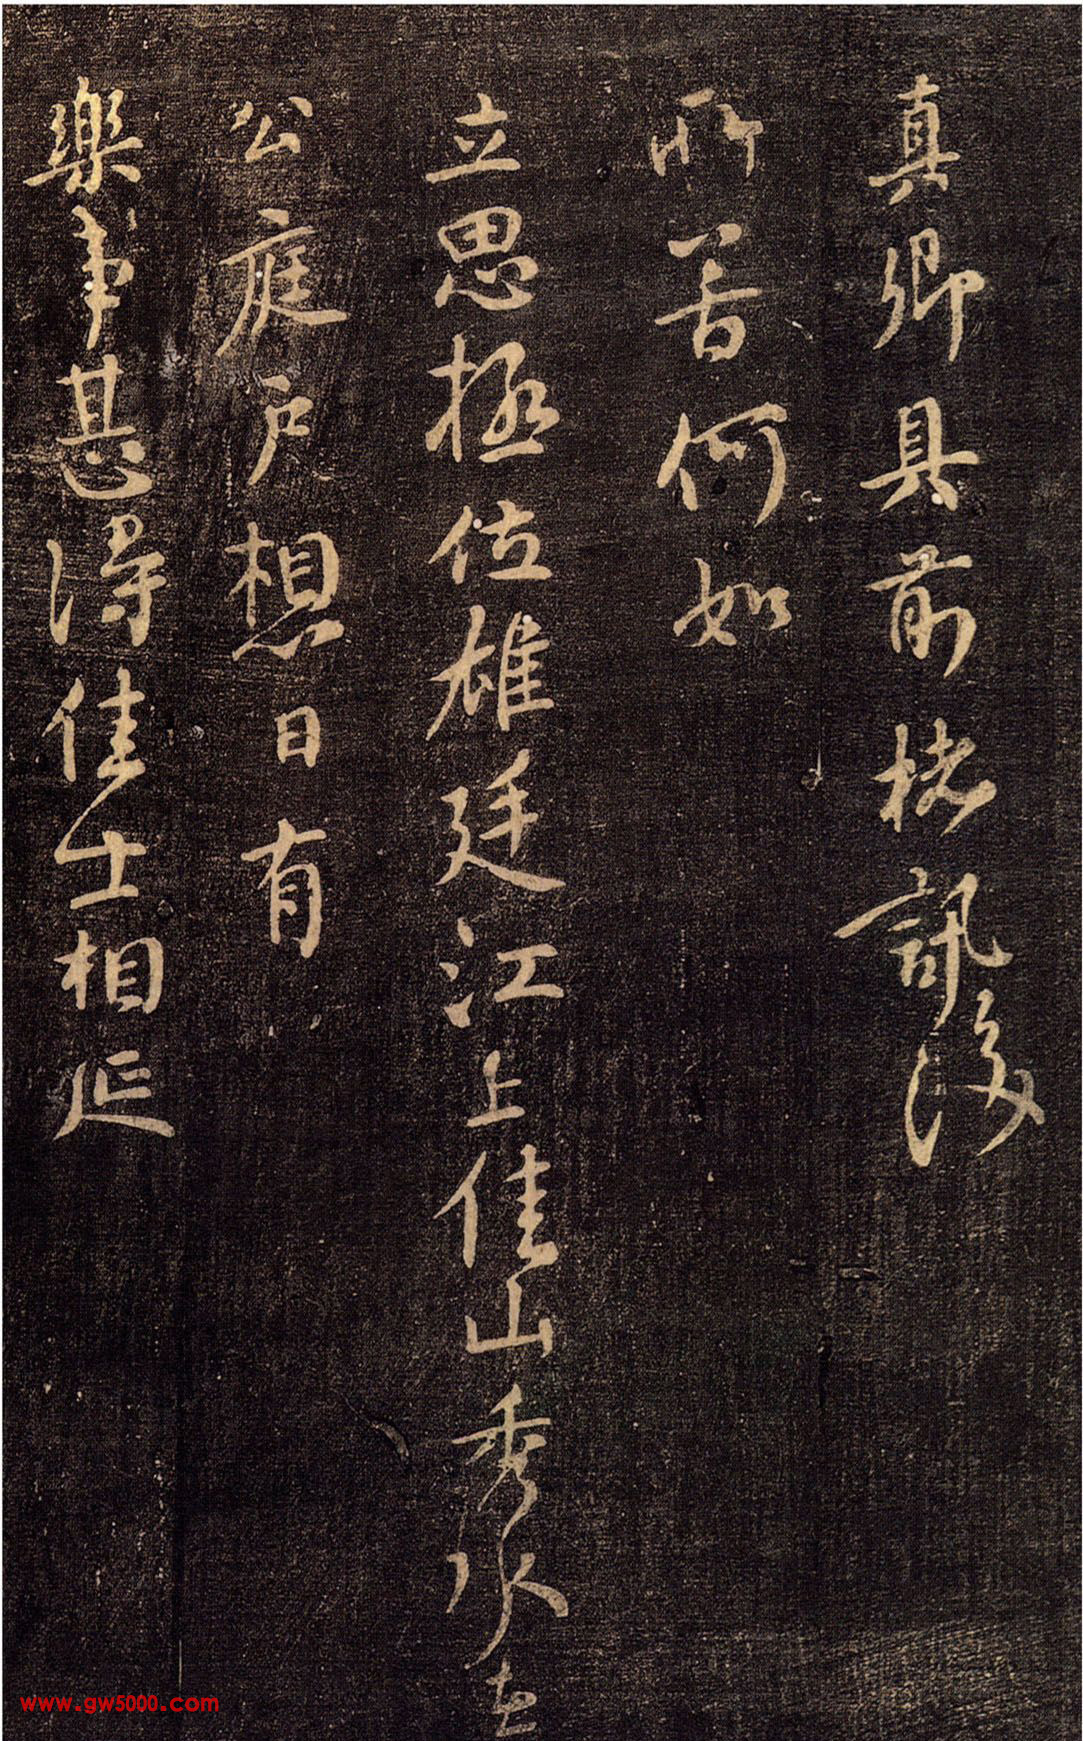 真卿具前楮訊後
所苦何如
立思極位雄廷江上佳山秀水在
公庭戶想日有
樂事甚得佳士相延
www.gw5000.com